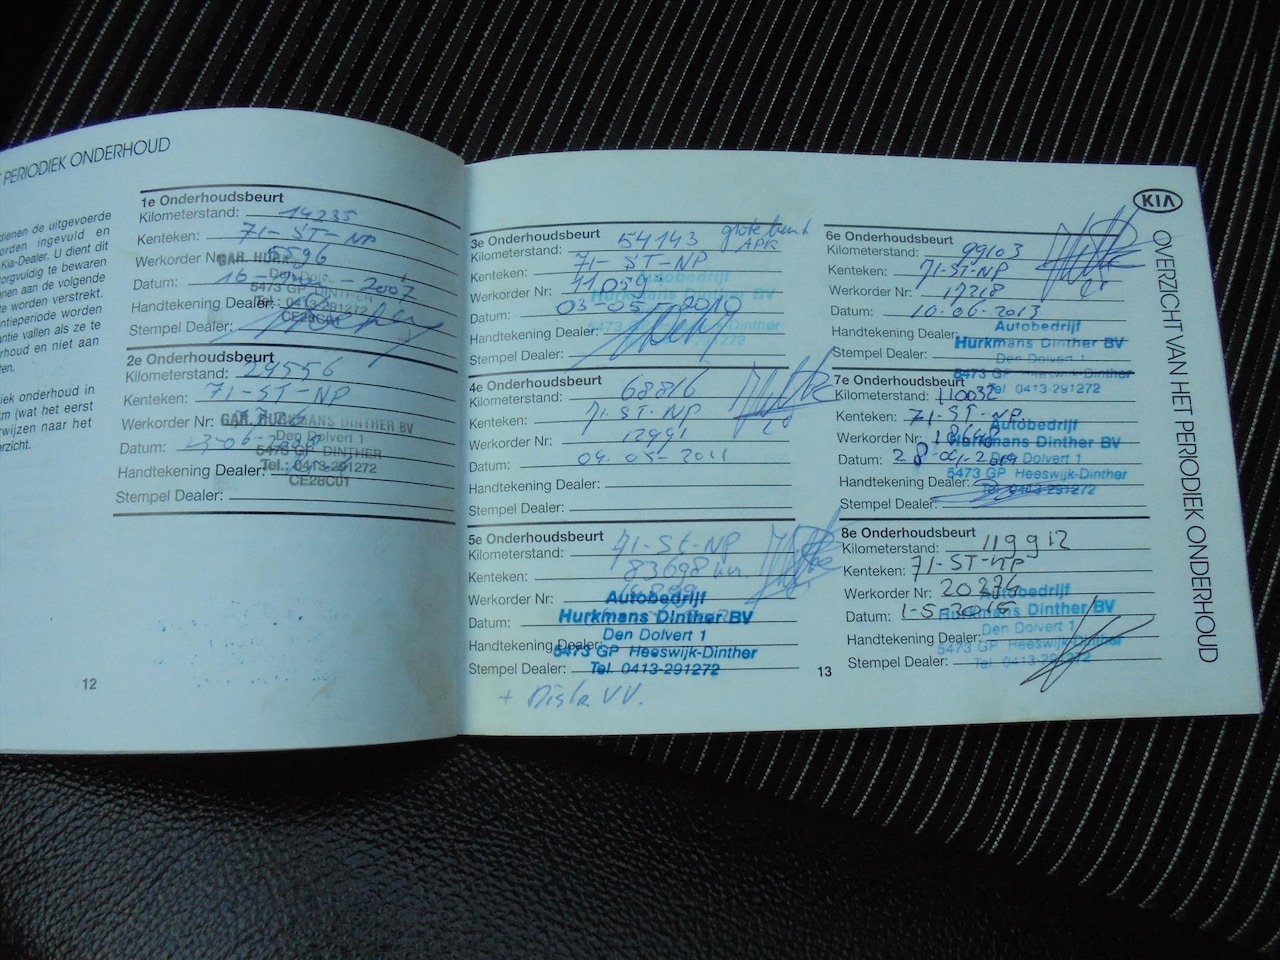 PERIODIEK ONDERHOUD
dienen de uitgevoerde
orden ingevuld en
Kia-Dealer. U dient dit
orgvuldig te bewaren
enen aan de volgende
te worden verstrekt.
antieperiode worden
antie vallen als ze te
rhoud en niet aan
ten.
iek onderhoud in
km (wat het eerst
rwijzen naar het
erzicht.
1e Onderhoudsbeurt
Kilometerstand: 14235
Kenteken: 71-ST-NP
Werkorder Nr:
Datum: 16- -2007
Handtekening Dealer:
Stempel Dealer:
5473 GP DINTHER
Tel.: 0413-291272
CE28C01
2e Onderhoudsbeurt
Kilometerstand: 29556
Kenteken: 71-ST-NP
Werkorder Nr:
Datum:
Handtekening Dealer:
Stempel Dealer:
GAR. HURKMANS DINTHER BV
Den Dolvert 1
5473 GP DINTHER
Tel.: 0413-291272
CE28C01
12
3e Onderhoudsbeurt grote beurt
Kilometerstand: 54143 APK
Kenteken: 71-ST-NP
Werkorder Nr: 11059
Datum: 03-05-2010
Handtekening Dealer:
Stempel Dealer:
Autobedrijf
Hurkmans Dinther BV
4e Onderhoudsbeurt
Kilometerstand: 68816
Kenteken: 71-ST-NP
Werkorder Nr: 12991
Datum: 04-05-2011
Handtekening Dealer:
Stempel Dealer:
5e Onderhoudsbeurt
Kilometerstand: 71-St-NP
Kenteken: 83698 km.
Werkorder Nr:
Datum:
Handtekening Dealer:
Stempel Dealer:
Autobedrijf
Hurkmans Dinther BV
Den Dolvert 1
5473 GP Heeswijk-Dinther
Tel. 0413-291272
13
6e Onderhoudsbeurt
Kilometerstand: 99103
Kenteken: 71-ST-NP
Werkorder Nr: 17218
Datum: 10-06-2013
Handtekening Dealer:
Stempel Dealer:
Autobedrijf
Hurkmans Dinther BV
Den Dolvert 1
5473 GP Heeswijk-Dinther
Tel 0413-291272
7e Onderhoudsbeurt
Kilometerstand: 110032
Kenteken: 71-ST-NP
Werkorder Nr:
Datum:
Handtekening Dealer:
Stempel Dealer:
Autobedrijf
Hurkmans Dinther BV
Den Dolvert 1
5473 GP Heeswijk-Dinther
Tel. 0413-291272
8e Onderhoudsbeurt
Kilometerstand: 119912
Kenteken: 71-ST-NP
Werkorder Nr: 20274
Datum: 1-5-2015
Handtekening Dealer:
Stempel Dealer:
Autobedrijf
Hurkmans Dinther BV
Den Dolvert 1
5473 GP Heeswijk-Dinther
Tel 0413-291272
KIA
OVERZICHT VAN HET PERIODIEK ONDERHOUD